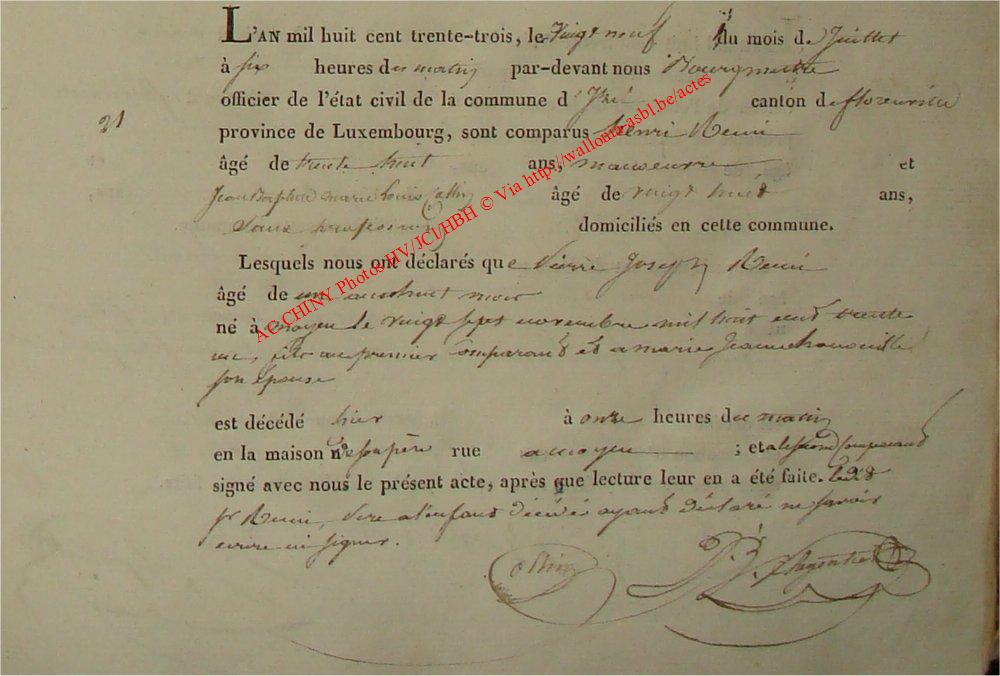 L'AN mil huit cent trente-trois, le vingt neuf du mois de Juillet
à six heures du matin par-devant nous Bourgmestre
officier de l'état civil de la commune d' canton de florenville
21
province de Luxembourg, sont comparus henri Remi
âgé de trente huit ans, manoeuvre et
Jean Baptiste marie Louis Collin âgé de vingt huit ans,
Sans profession domiciliés en cette commune.
Lesquels nous ont déclarés que Pierre Joseph Remi
âgé de un an huit mois
né à moyen le vingt sept novembre mil huit cent trente
un, fils au premier Comparant et a marie Jeanne
son épouse
est décédé hier à onze heures du matin
en la maison de son père rue a moyen ; et a le second Comparant
signé avec nous le présent acte, après que lecture leur en a été faite. Ledit
sr Remi, Père a l'enfant décédé ayant déclaré ne savoir
ecrire ni signer.
Collin
AC CHINY Photos HV/JCI/HBH © Via http://wallonia-asbl.be/actes